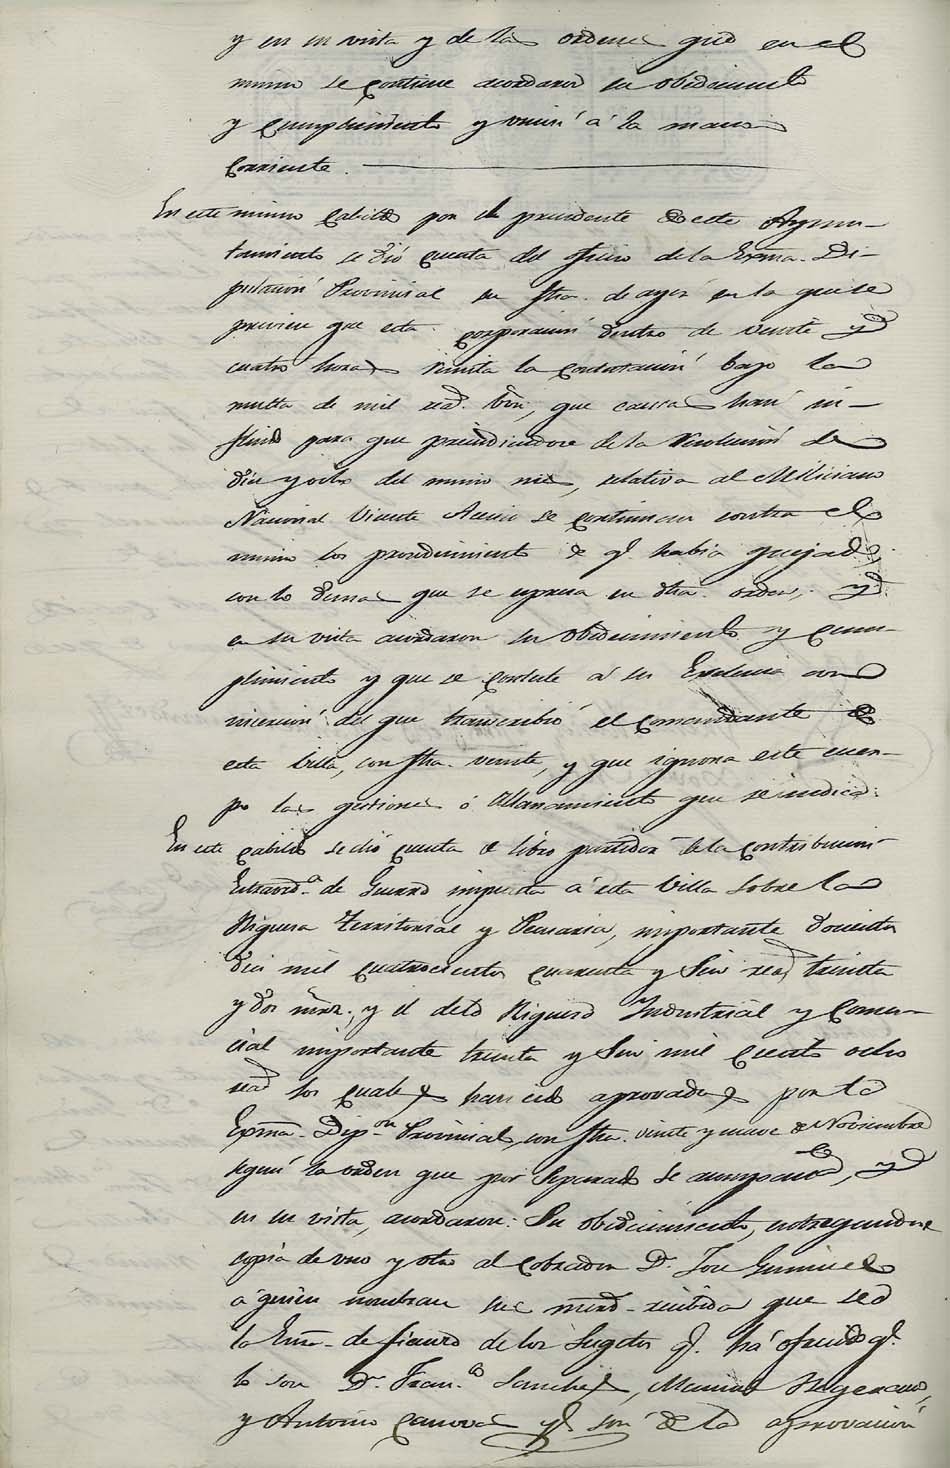 y en su vista y de las ordenes que en el
mismo se contiene acordaron su obedecimiento
y cumplimiento y unirsé á la mano
corriente.
En este mismo Cabildo por el presidente de este Ayun-
tamiento se dió cuenta del oficio de la Exma. Di-
putacion Provincial su fha. de ayer en la que se
previene que esta corporacion dentro de veinte y
cuatro horas remita la contestacion bajo la
multa de mil rea.s von, que causas han in-
fluido para que prescindiendose de la resolucion de
diez y ocho del mismo mes, relativa al Miliciano
Nacional Vicente se continuen contra el
mismo los procedimientos de q.e habia quejado
con lo demas que se espresa en dha. orden, y
en su vista acordaron su obedecimiento y cum-
plimiento y que se conteste á su Exelencia con
insercion del que transcribió el comandante de
esta Villa, con fha. veinte, y que ignora este cuer-
po las gestiones ó allanamiento que se indica.
En este cabildo se dió cuenta de libro partidor de la contribucion
Extraord.a de Guerra impuesta á esta Villa sobre la
Riquesa Territorial y Pecuaria, importante docientos
diez mil cuatrocientos cuarenta y Seis rea.s treinta
y dos mrs.; y el de la Riquesa Industrial y Comer-
cial importante treinta y Seis mil ciento ocho
rea.s los cuales han sido aprovados por la
Exma. Dip.on Provincial, con fha. veinte y nueve de Noviembre
segun la orden que por separado se acompaña, y
en su vista, acordaron: Su obedecimiento, entregandose
copia de uno y otro al cobrador D.n Jose
á quien nombran que sea
la de fianza de los Sugetos q.e há ofrecido q.e
lo son D.n Fran.co Sanchez, Manuel
y Antonio Canovas q.e son de la aprovacion